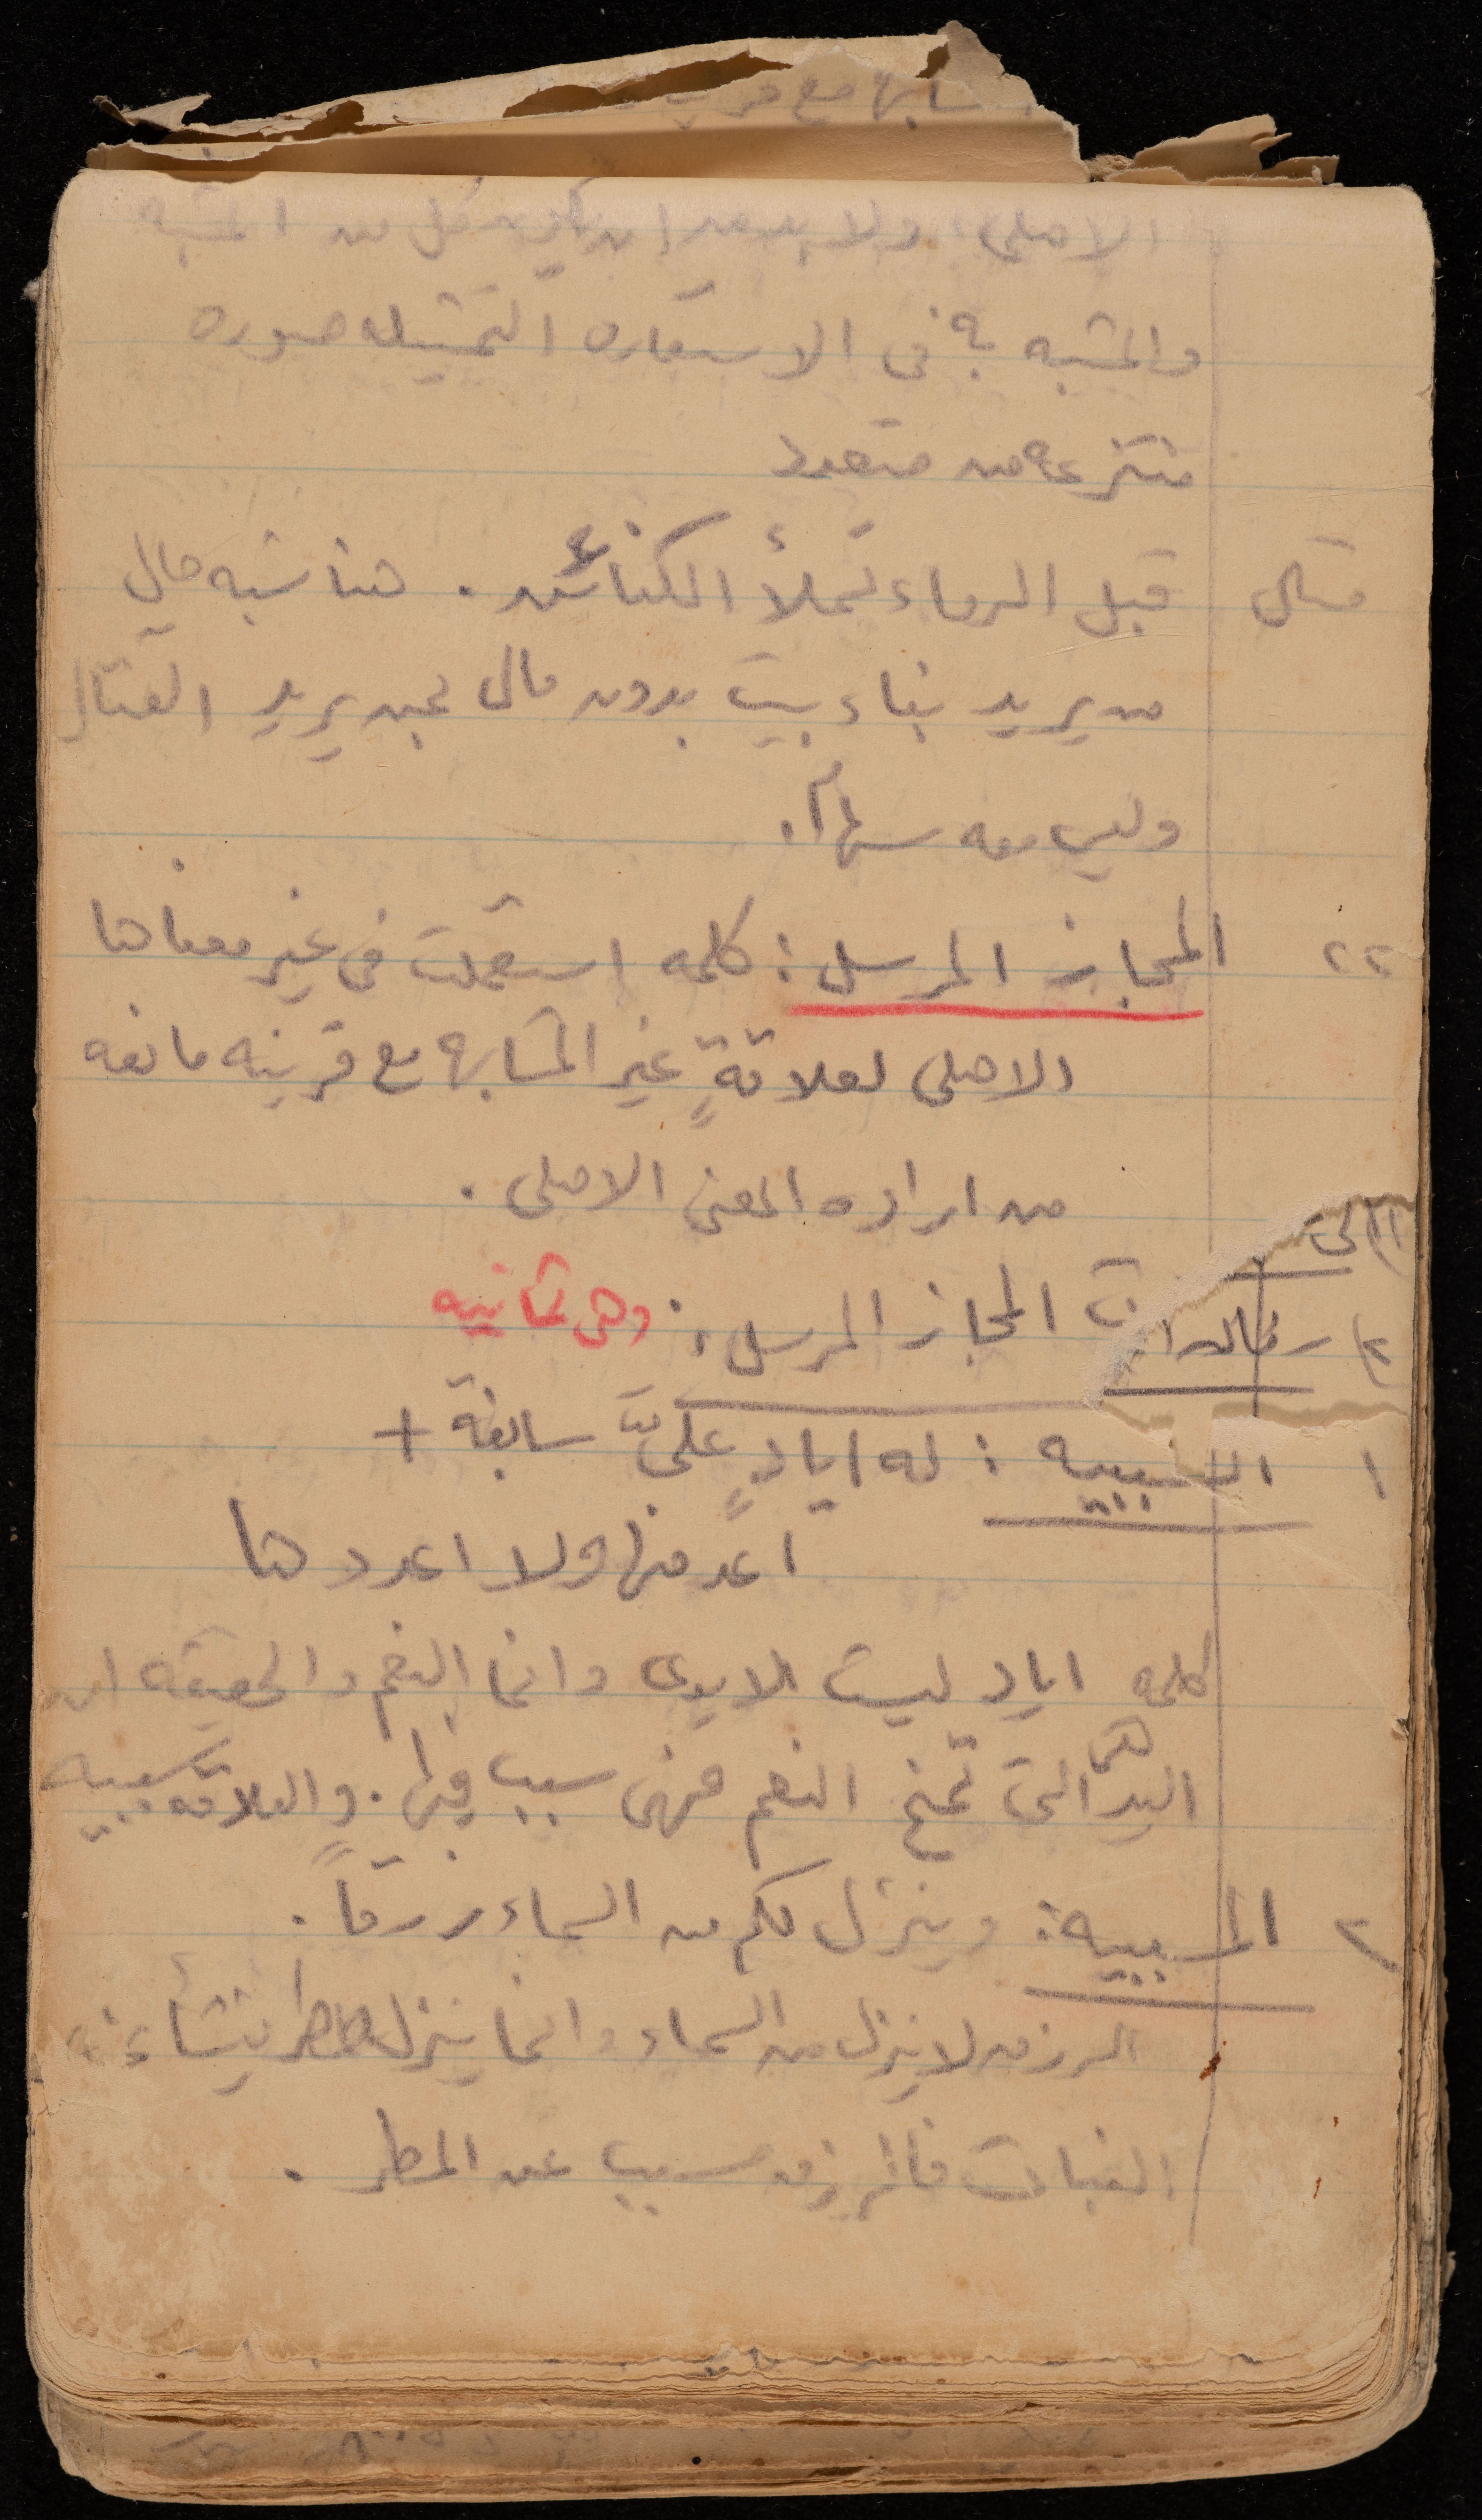 الاصلي، ولا بد من ان يكون كل من المشبه
والمشبه به في الاستعاره التمثيليه صوره
منتزعه من متعدد
مثال قبل الرماء تملأ الكنائن. هنا شبه حال
من يريد بناء بيت بدون مال بمن يريد القتال
وليس معه سهام.
٢٢ المجاز المرسل: كلمه استعملت في غير معناها
الاصلي لعلاقةٍ غير المشابهه مع قرينه مانعه
من اراده المعنى الاصلي.
ت المجاز المرسل: وهي ثمانيه
١ السببيه: له ايادٍ عليّ سابغة +
اعد منها ولا اعددها
كلمه اياد ليست الايدي وانما النعم والحقيقه ان
اليد هي التي تمنح النعم فهي سبب فيها. والعلاقه سببيه
٢ المسببيه: وينزل لكم من السماء رزقاً.
الرزق لا ينزل من السماء وانما ينزل مطر ينشأ عنه
النبات فالرزق مسبب عن المطر.